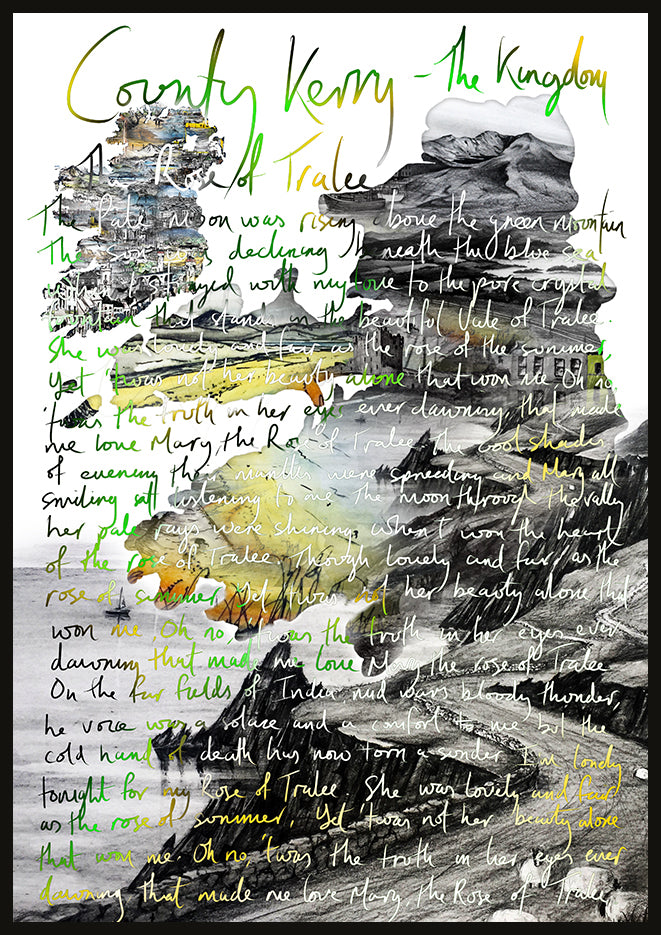 County Kerry - The Kingdom
The Rose of Tralee
The Pale Moon was rising above the green mountain
The sun was declining beneath the blue sea
when I strayed with my love to the pure crystal
fountain that stands in the beautiful Vale of Tralee.
She was lovely and fair as the rose of the summer,
Yet 'twas not her beauty alone that won me Oh no,
'twas the truth in her eyes ever dawning, that made
me love Mary, the Rose of Tralee. The cool shades
of evening their mantles were spreading and Mary all
smiling sat listening to me The moon through the valley
her pale rays were shining when I won the heart
of the rose of Tralee. Though lovely and fair as the
rose of summer Yet 'twas not her beauty alone that
won me Oh no, 'twas the truth in her eyes ever
dawning that made me love Mary the rose of Tralee
On the far fields of India mid wars bloody thunder,
he voice was a solace and a comfort to me but the
cold hand of death has now torn a sunder I'm lonely
tonight for my Rose of Tralee. She was lovely and fair
as the rose of summer, Yet 'twas not her beauty alone
that won me. Oh no, 'twas the truth in her eyes ever
dawning that made me love Mary, the Rose of Tralee